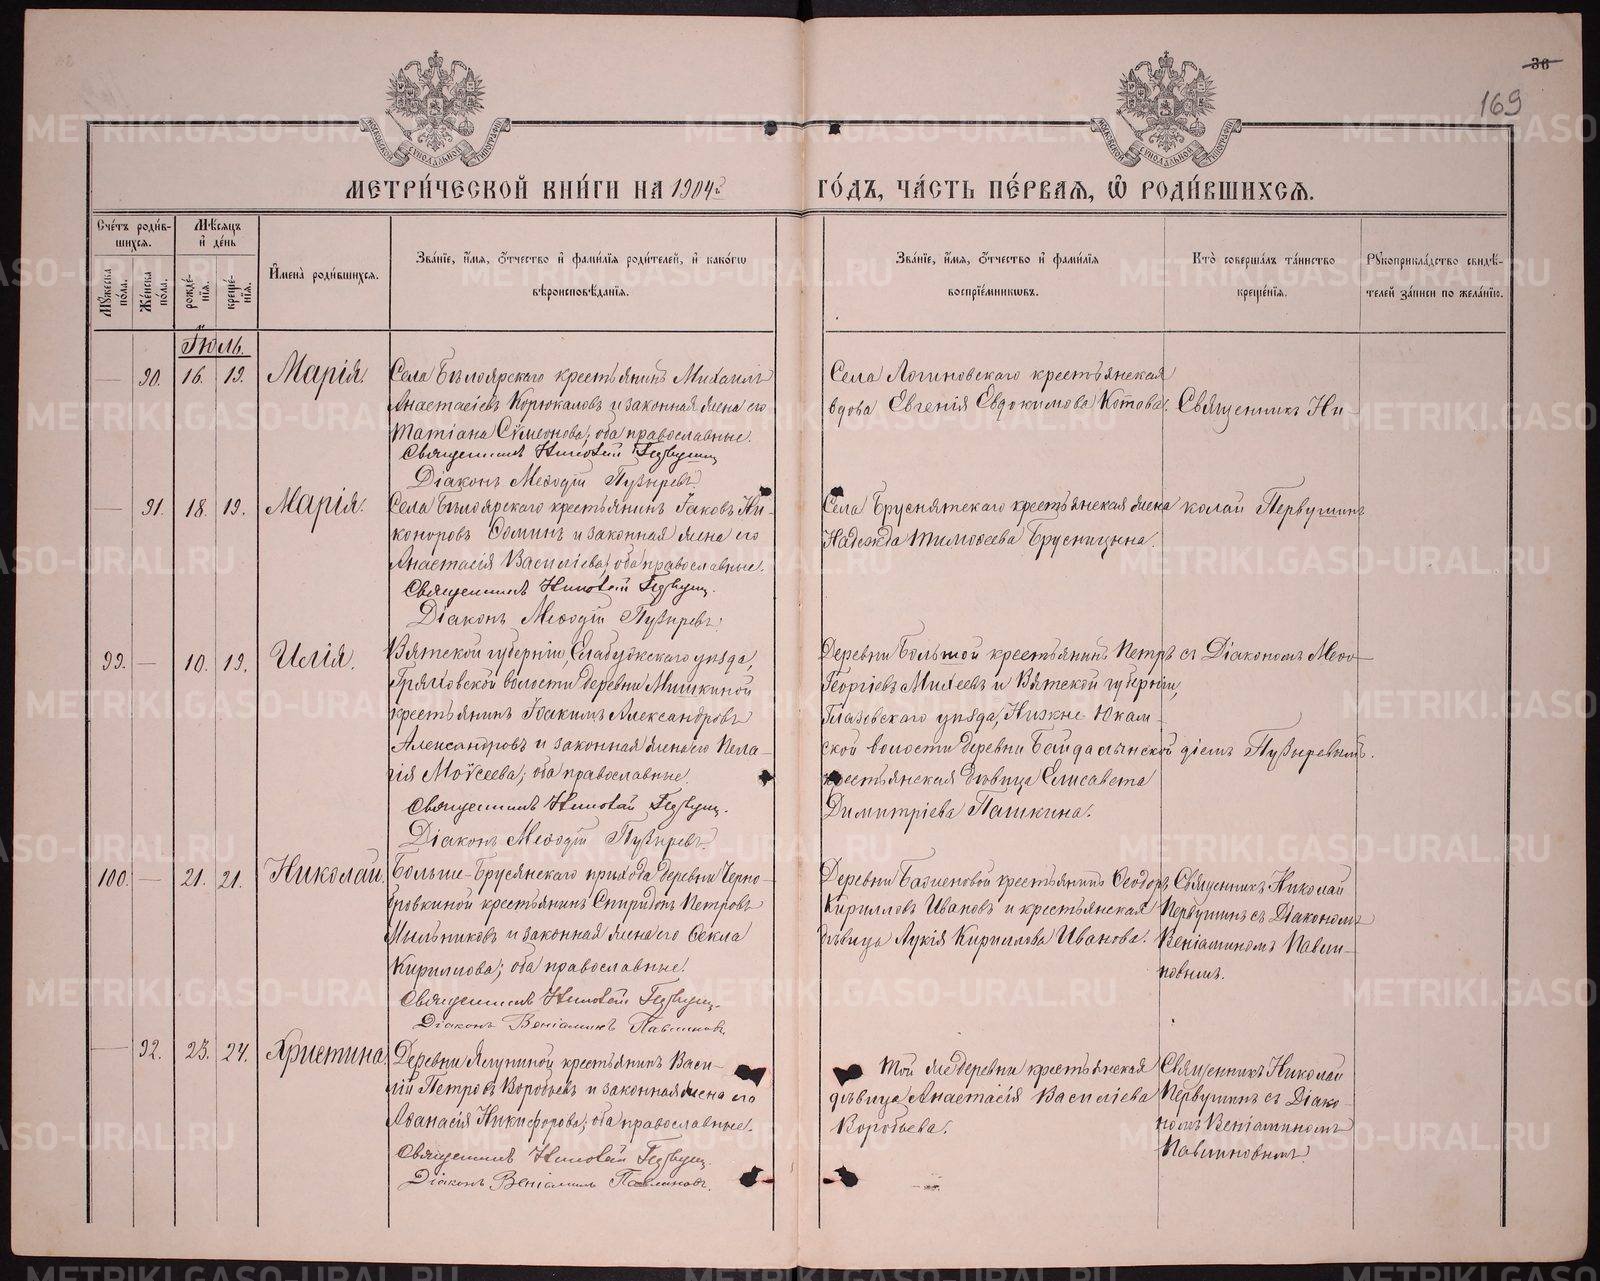 36
169
МЕТРИ́ЧЕСКОЙ КНИ́ГИ НА 1904й
ГО́ДЪ, ЧА́СТЬ ПЕ́РВАЯ, Ѡ҆ РОДИ́ВШИХСЯ.
Сче́тъ роди́в-
шихся.
Мѣ́сяцъ
и҆ де́нь
Мꙋ́жеска по́ла.
Же́нска по́ла.
рожде́-
нїя.
креще́-
нїя.
И҆мена̀ роди́вшихся.
Зва́нїе, и҆́мя, ѻ҆́тчество и҆ фами́лїя роди́телей, и҆ како́гѡ
вѣроисповѣ́данїя.
Зва́нїе, и҆́мя, ѻ҆́тчество и҆ фами́лїя
воспрїе́мникѡвъ.
Кто̀ соверша́лъ та́инство
креще́нїя.
Рꙋкоприкла́дство свидѣ́-
телей за́писи по жела́нїю.
Іюль.
90. 16. 19. Марія.
Села Бѣлоярскаго крестьянинъ Михаилъ
Анастасіевъ Корюкаловъ и законная жена его
Татіана Сѵмеонова; оба православные.
Священникъ Николай Первушин
Діаконъ Меѳодій Пузыревъ.
Села Логиновскаго крестьянская
вдова Евгенія Евдокимова Котова.
Священникъ Ни-
91. 18. 19. Марія.
Села Бѣлоярскаго крестьянинъ Іаковъ Ни-
коноровъ Ѳоминъ и законная жена его
Анастасія Василіева; оба православные.
Священникъ Николай Первушин.
Діаконъ Меѳодій Пузыревъ.
Села Бруснятскаго крестьянская жена
Надежда Тимоѳеева Брусницына.
колай Первушинъ
99. 10. 19. Илія.
Вятской губерніи, Елабужскаго уѣзда,
Граховской волости деревни Мишкиной
крестьянинъ Іоакимъ Александровъ
Александровъ и законная жена его Пела-
гія Моѵсеева; оба православные.
Священникъ Николай Первушин.
Діаконъ Меѳодій Пузыревъ.
Деревни Большой крестьянинъ Петръ
Георгіевъ Михеевъ и Вятской губерніи,
Глазовскаго уѣзда, Нижне-Укан-
ской волости деревни Байдалынской
крестьянская дѣвица Елисавета
Димитріева Пашкина.
съ Діакономъ Меѳо-
діемъ Пузыревымъ.
100. 21. 21. Николай.
Больше-Брусянскаго прихода деревни Черно-
бровкиной крестьянинъ Спиридонъ Петровъ
Мыльниковъ и законная жена его Ѳекла
Кириллова; оба православные.
Священникъ Николай Первушин.
Діаконъ Веніаминъ Павлиновъ
Деревни Баженовой крестьянинъ Ѳеодоръ
Кирилловъ Ивановъ и крестьянская
дѣвица Лукія Кириллова Иванова.
Священникъ Николай
Первушинъ съ Діакономъ
Веніаминомъ Павли-
новымъ.
92. 23. 24. Христина.
Деревни Ялуниной крестьянинъ Васи-
лій Петровъ Воробьевъ и законная жена его
Аѳанасія Никифорова; оба православные.
Священникъ Николай Первушин.
Діаконъ Веніаминъ Павлиновъ.
Той же деревни крестьянская
дѣвица Анастасія Василіева
Воробьева.
Священникъ Николай
Первушинъ съ Діако-
номъ Веніаминомъ
Павлиновымъ.